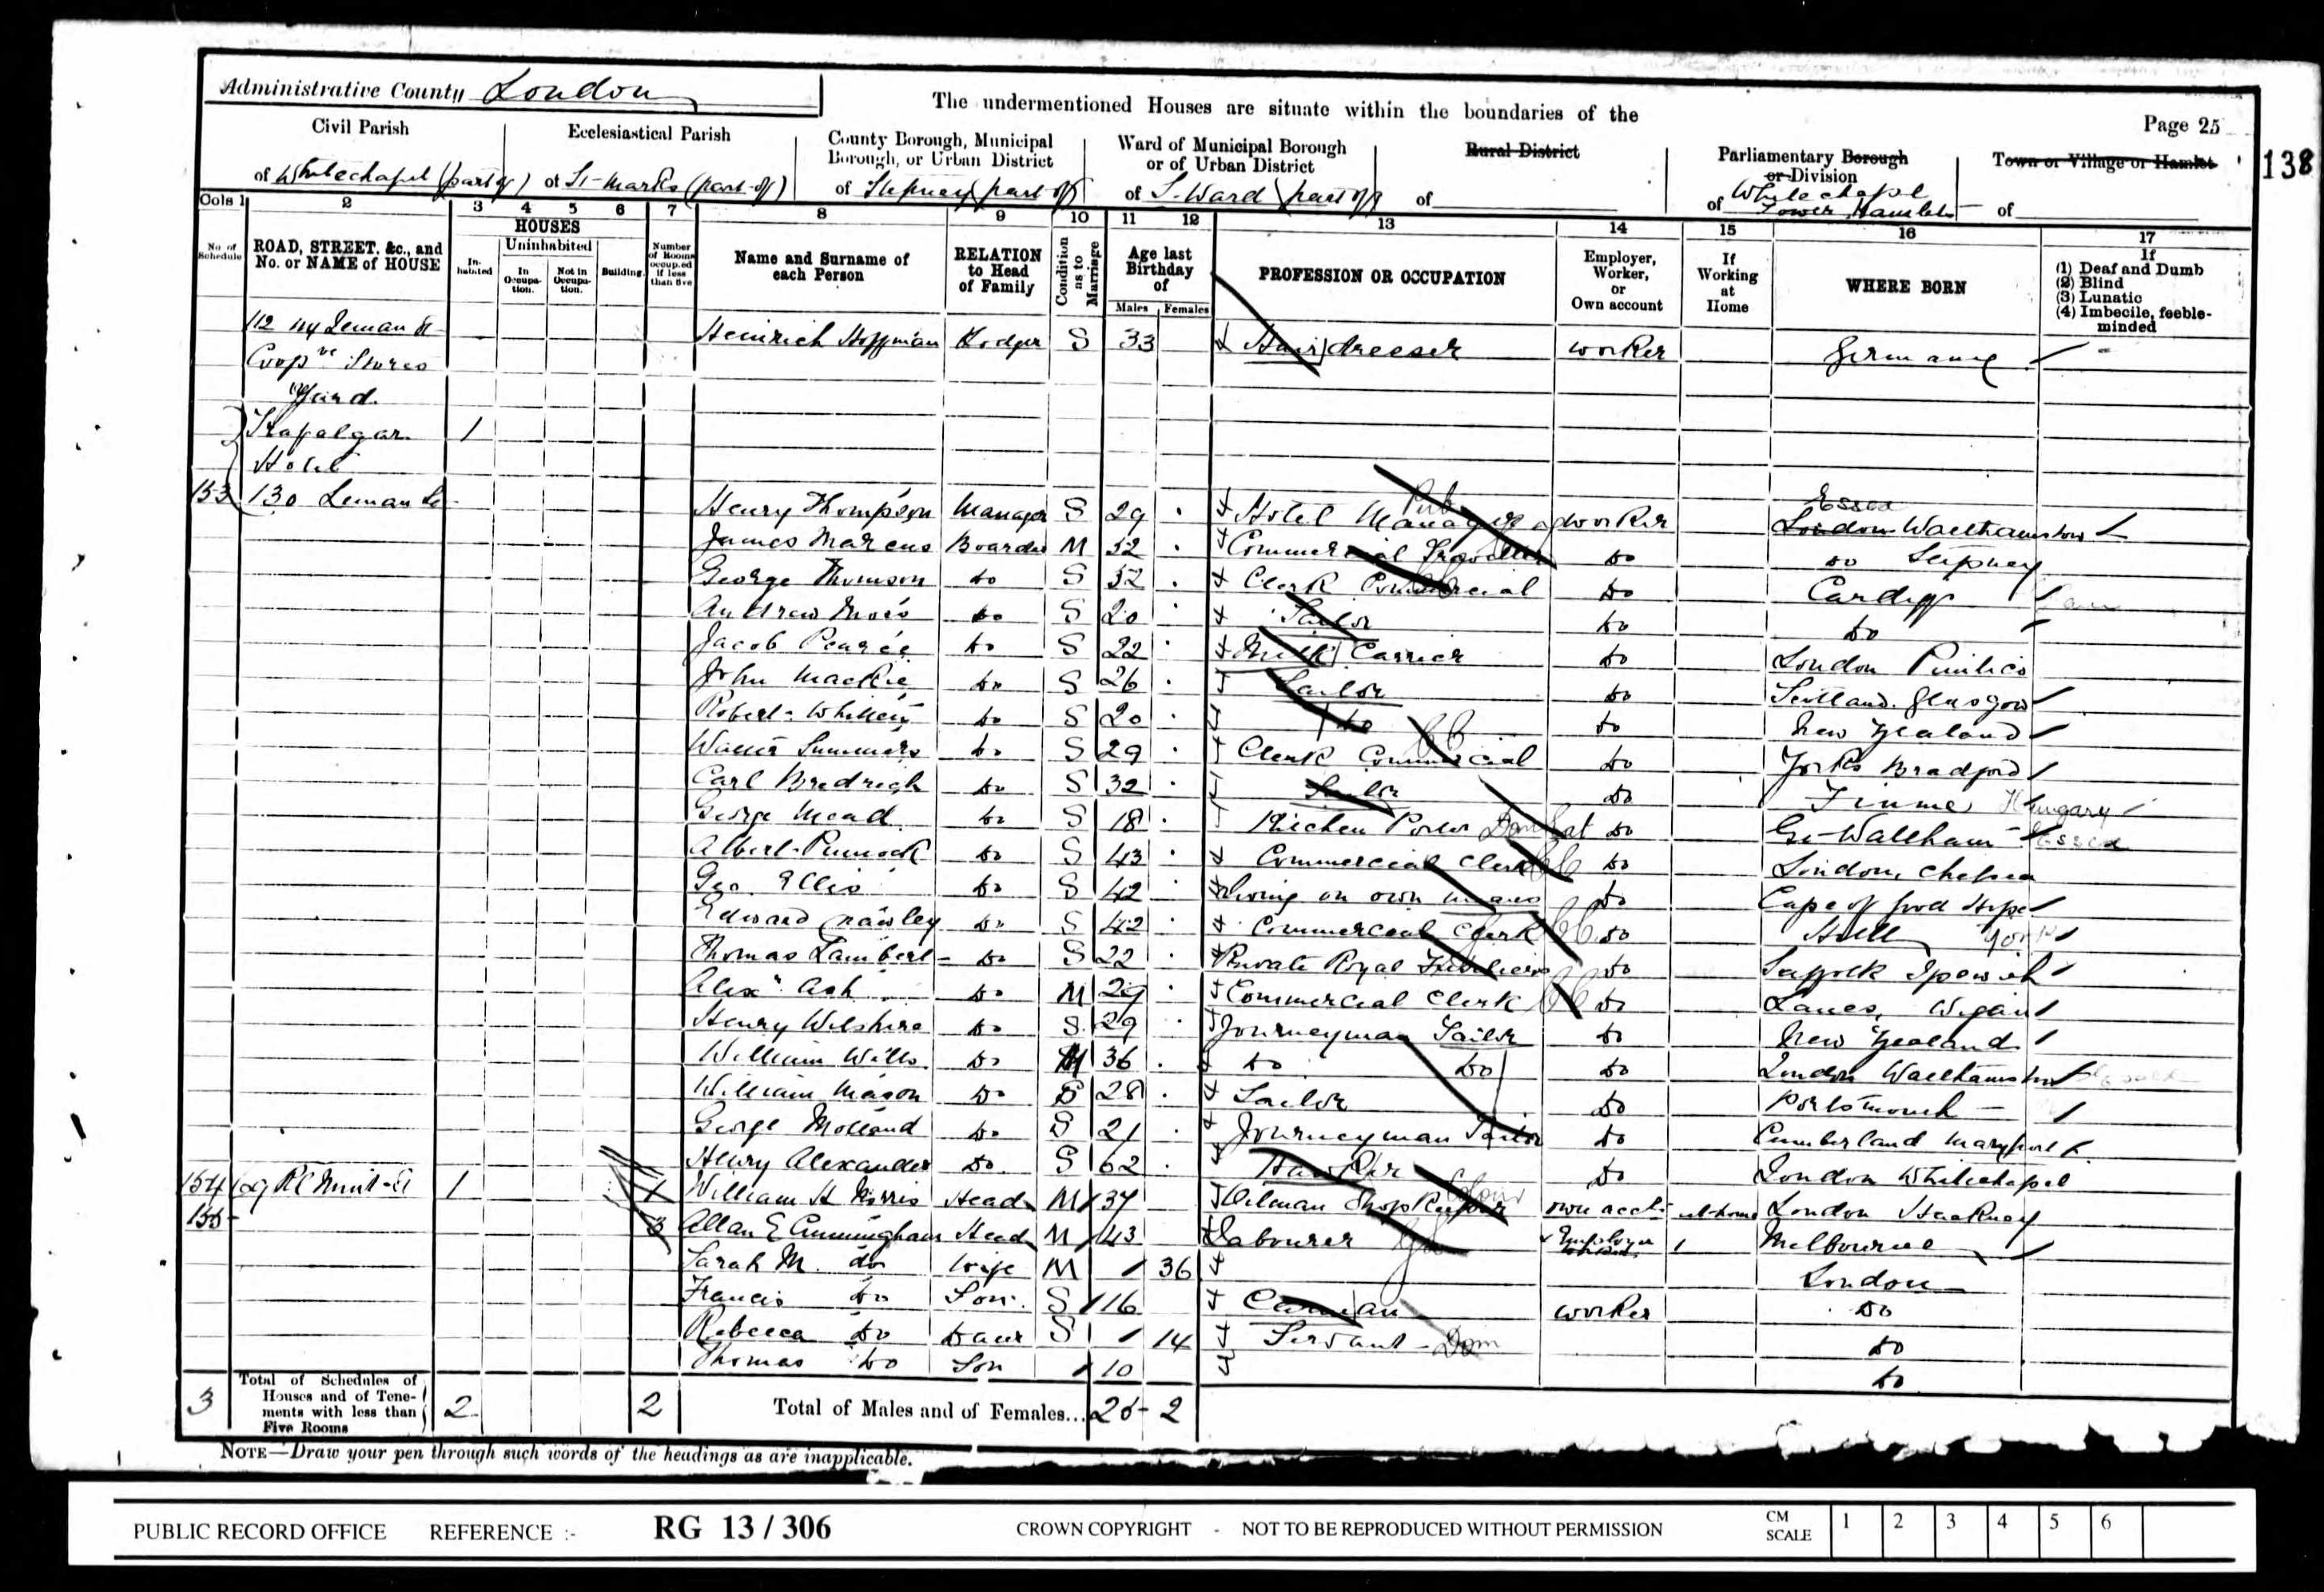 Administrative County London
The undermentioned Houses are situate within the boundaries of the
Page 25
138
Civil Parish
of Whitechapel (part of)
Ecclesiastical Parish
of St Marks (part of)
County Borough, Municipal
Borough, or Urban District
of Stepney (part of)
Ward of Municipal Borough
or of Urban District
of S. Ward (part of)
Rural District
of
Parliamentary Borough
or Division
of Whitechapel
Tower Hamlets
Town or Village or Hamlet
of
Cols 1 2 3 4 5 6 7 8 9 10 11 12 13 14 15 16 17
No. of Schedule
ROAD, STREET, &c., and
No. or NAME of HOUSE
HOUSES
Inhabited
Uninhabited
In Occupation.
Not in Occupation.
Building
Number of Rooms occupied if less than five
Name and Surname of
each Person
RELATION
to Head
of Family
Condition as to Marriage
Age last
Birthday
of
Males Females
PROFESSION OR OCCUPATION
Employer,
Worker,
or
Own account
If
Working
at
Home
WHERE BORN
If
(1) Deaf and Dumb
(2) Blind
(3) Lunatic
(4) Imbecile, feeble-
minded
112 114 Leman St Heinrich Hoffman Lodger S 33 Hairdresser worker Germany
Coopve Stores
Yard.
Trafalgar 1
Hotel
153 130 Leman St Henry Thompson Manager S 29 Hotel Manager Pub worker Essex London Walthamstow
James Marcus Boarder M 52 Commercial Traveller Do Do Stepney
George Thomson Do S 52 Clerk Commercial Do Cardiff
Andrew Do S 20 Sailor Do Do
Jacob Pearce Do S 22 Milk Carrier Do London Pimlico
John Mackie Do S 26 Sailor Do Scotland. Glasgow
Robert Do S 20 Do Do New Zealand
Walter Summers Do S 29 Clerk Commercial Do Yorks Bradford
Carl Do S 32 Sailor Do Fiume Hungary
George Mead Do S 18 Kitchen Porter Do Gt Waltham Essex
Albert Do S 43 Commercial Clerk Do London, Chelsea
Geo. Ellis Do S 42 Living on own means Do Cape of Good Hope
Edward Do S 42 Commercial Clerk Do Hull York
Thomas Lambert Do S 22 Private Royal Fusiliers Do Suffolk Ipswich
Alexr. Ash Do M 29 Commercial Clerk Do Lancs, Wigan
Henry Wilshire Do S 29 Journeyman Tailor Do New Zealand
William Wills Do M 36 Do Do Do London Walthamstow
William Mason Do S 28 Sailor Do Portsmouth
George Molland Do S 21 Journeyman Tailor Do Cumberland Maryport
Henry Alexander Do S 62 Hawker Do London Whitechapel
154 69 Rl Mint St 1 1 William H Morris Head M 37 Oilman Shopkeeper Colour own acct at home London Hackney
155 3 Allan E Cunningham Head M 43 Labourer Employer 1 Melbourne
Sarah M. do Wife M 36 London
Francis Do Son S 16 Carman worker Do
Rebecca Do Daur S 14 Servant Dom Do
Thomas Do Son 10 Do
3 Total of Schedules of
Houses and of Tene-
ments with less than
Five Rooms
2 2 Total of Males and of Females... 25 2
NOTE—Draw your pen through such words of the headings as are inapplicable.
PUBLIC RECORD OFFICE REFERENCE :- RG 13 / 306 CROWN COPYRIGHT - NOT TO BE REPRODUCED WITHOUT PERMISSION CM
SCALE 1 2 3 4 5 6